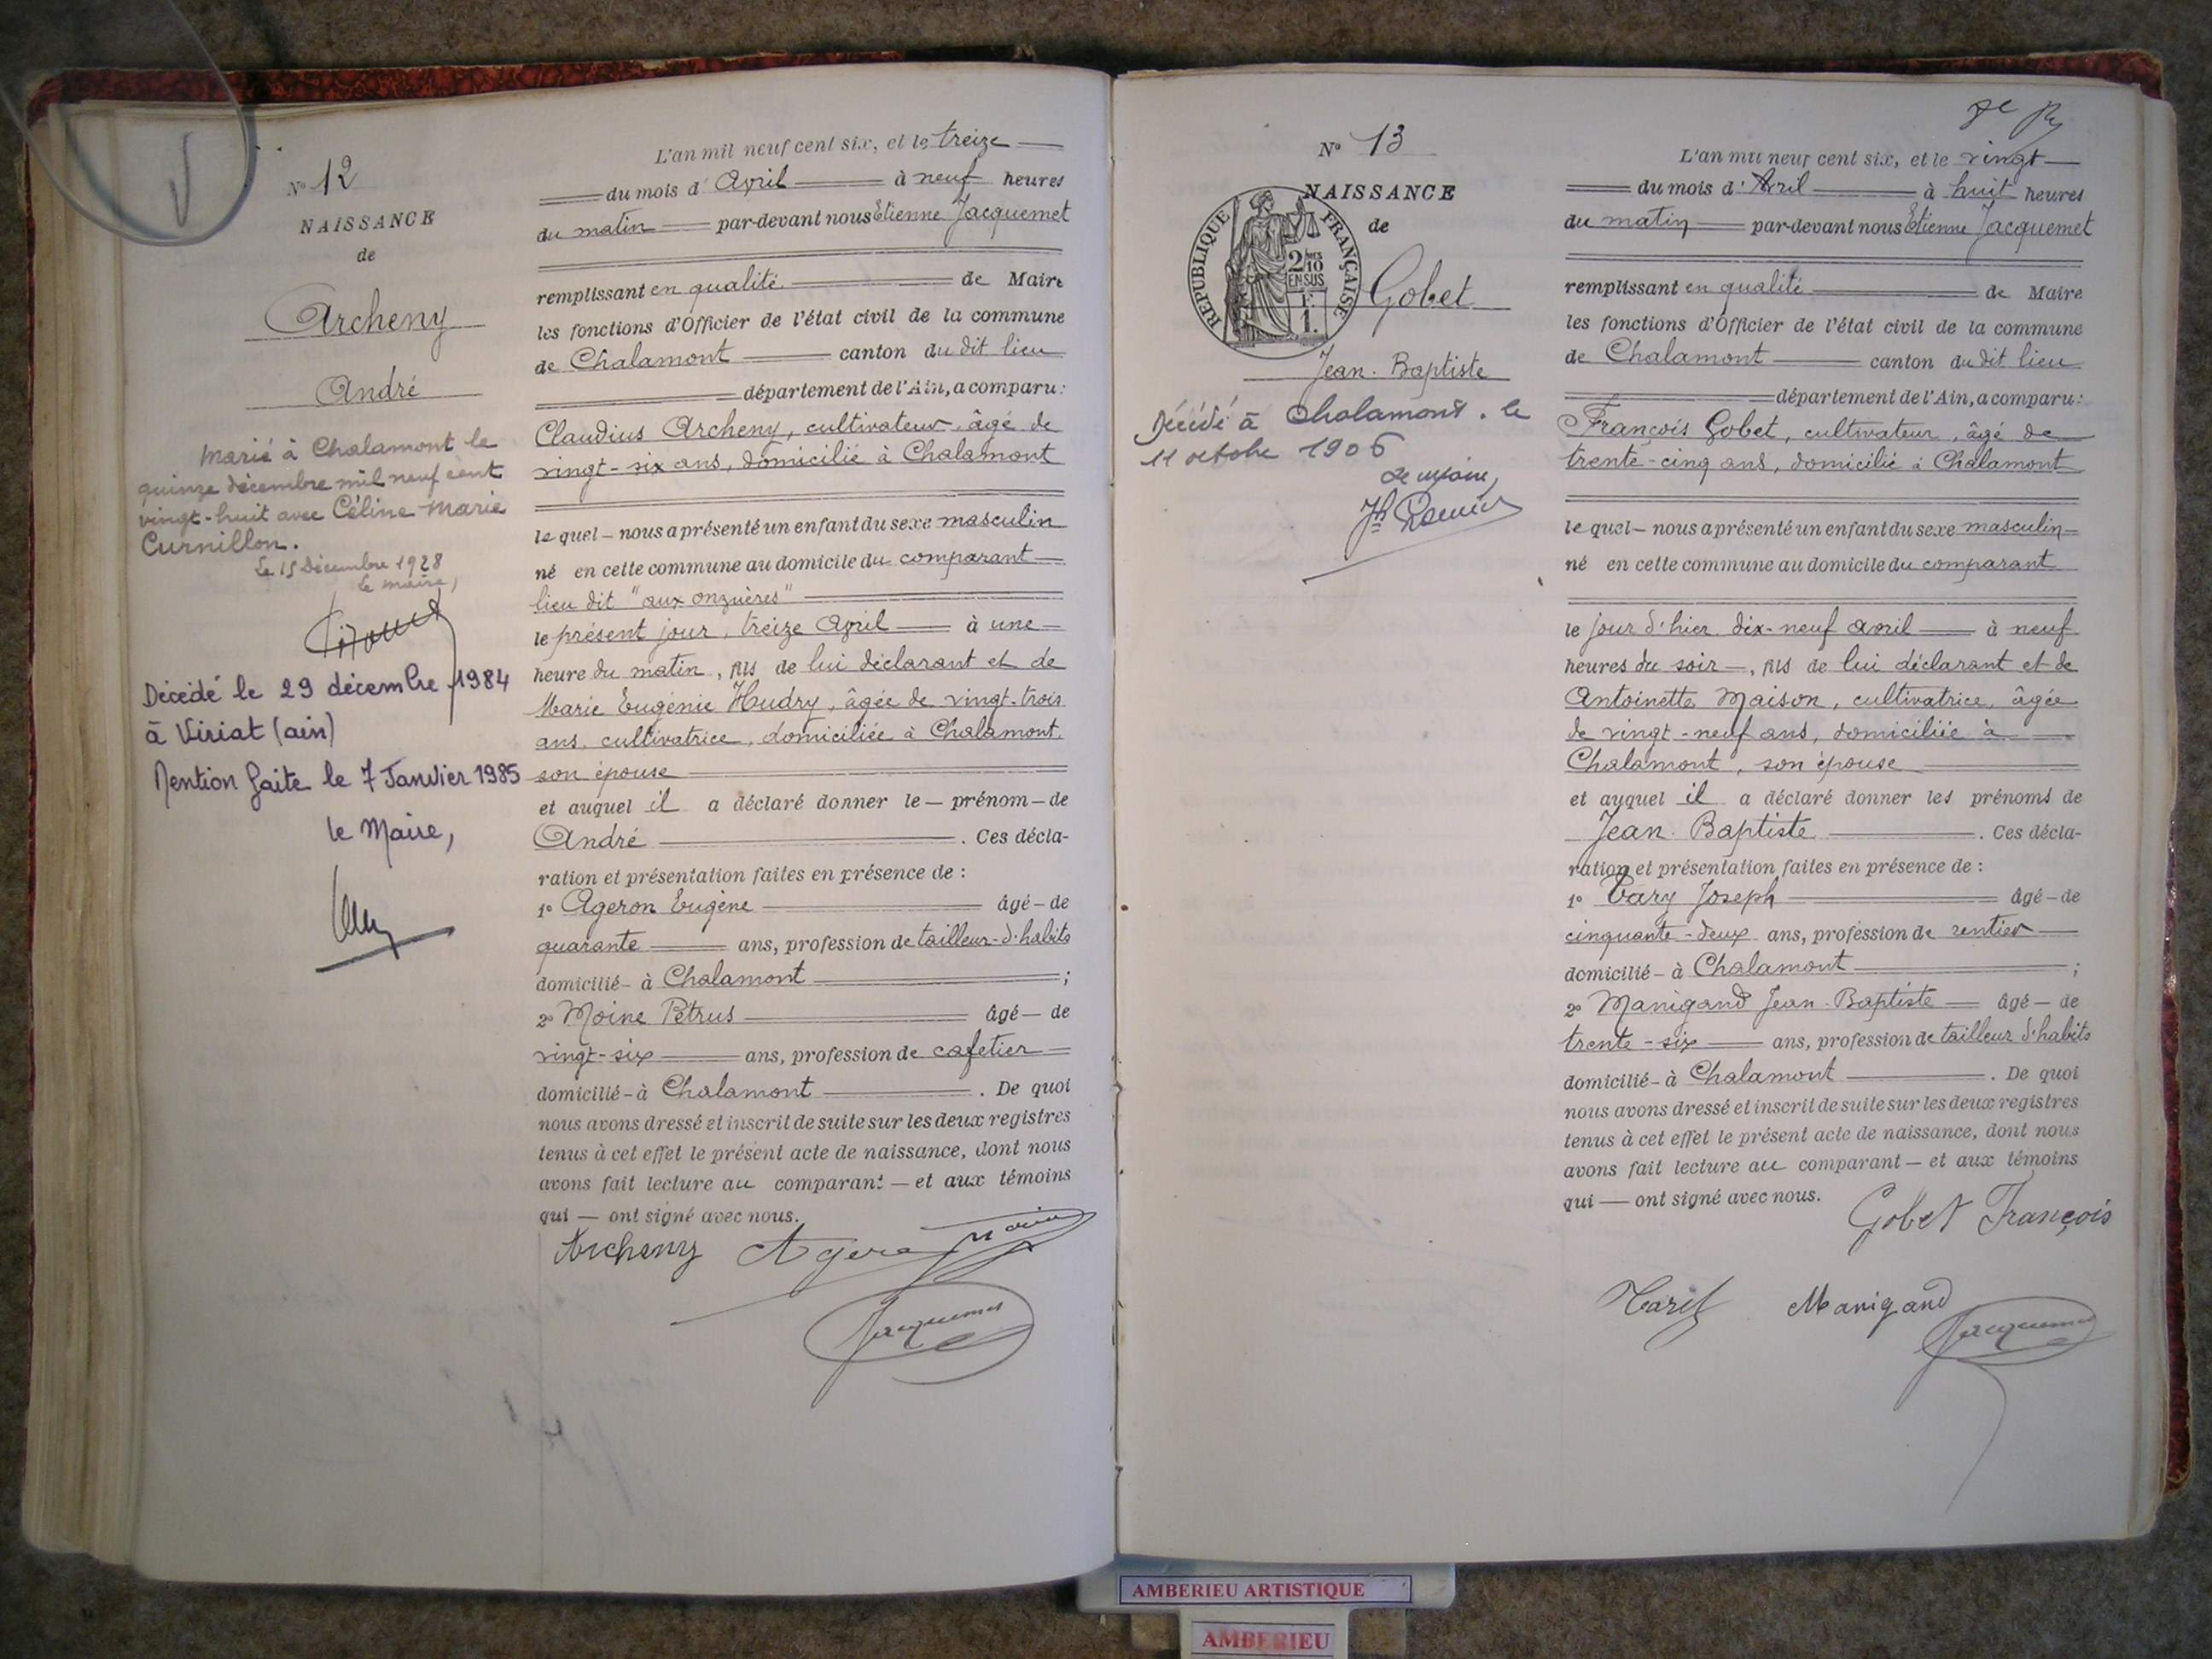 N° 12
NAISSANCE
de
Archeny
André
Marié à Chalamont le
quinze décembre mil neuf cent
vingt-huit avec Céline Marie
Curnillon.
Le 15 Décembre 1928
le maire,
Décédé le 29 décembre 1984
à Viriat (ain)
Mention faite le 7 Janvier 1985
le Maire,
L'an mil neuf cent six, et le treize
du mois d'Avril à neuf heures
du matin par-devant nous Etienne Jacquemet
remplissant en qualité de Maire
les fonctions d'Officier de l'état civil de la commune
de Chalamont canton du dit lieu
département de l'Ain, a comparu:
Claudius Archeny, cultivateur, âgé de
vingt-six ans, domicilié à Chalamont
le quel - nous a présenté un enfant du sexe masculin
né en cette commune au domicile du comparant
lieu dit "aux onzuères"
le présent jour, treize Avril à une
heure du matin, fils de lui déclarant et de
Marie Eugénie Hudry, âgée de vingt-trois
ans, cultivatrice, domiciliée à Chalamont,
son épouse
et auquel il a déclaré donner le - prénom - de
André . Ces décla-
ration et présentation faites en présence de :
1° Ageron Eugène âgé - de
quarante ans, profession de tailleur-d'habits
domicilié - à Chalamont ;
2° Moine Pétrus âgé - de
vingt-six ans, profession de cafetier
domicilié - à Chalamont . De quoi
nous avons dressé et inscrit de suite sur les deux registres
tenus à cet effet le présent acte de naissance, dont nous
avons fait lecture au comparant - et aux témoins
qui - ont signé avec nous.
Archeny Ageron Moine
Jacquemet
N° 13
NAISSANCE
de
RÉPUBLIQUE FRANÇAISE
2/10 MES
EN SUS
1 F.
Gobet
Jean-Baptiste
Décédé à Chalamont, le
11 octobre 1906
Le Maire,
L'an mil neuf cent six, et le vingt
du mois d'Avril à huit heures
du matin par-devant nous Etienne Jacquemet
remplissant en qualité de Maire
les fonctions d'Officier de l'état civil de la commune
de Chalamont canton du dit lieu
département de l'Ain, a comparu:
François Gobet, cultivateur, âgé de
trente-cinq ans, domicilié à Chalamont
le quel - nous a présenté un enfant du sexe masculin
né en cette commune au domicile du comparant
le jour d'hier dix-neuf avril à neuf
heures du soir -, fils de lui déclarant et de
Antoinette Maison, cultivatrice, âgée
de vingt-neuf ans, domiciliée à
Chalamont, son épouse
et auquel il a déclaré donner les prénoms de
Jean-Baptiste . Ces décla-
ration et présentation faites en présence de :
1° Joseph âgé - de
cinquante-deux ans, profession de rentier
domicilié - à Chalamont ;
2° Manigand Jean-Baptiste âgé - de
trente-six ans, profession de tailleur d'habits
domicilié - à Chalamont . De quoi
nous avons dressé et inscrit de suite sur les deux registres
tenus à cet effet le présent acte de naissance, dont nous
avons fait lecture au comparant - et aux témoins
qui - ont signé avec nous.
Gobet François
Manigand
Jacquemet
AMBERIEU ARTISTIQUE
AMBERIEU